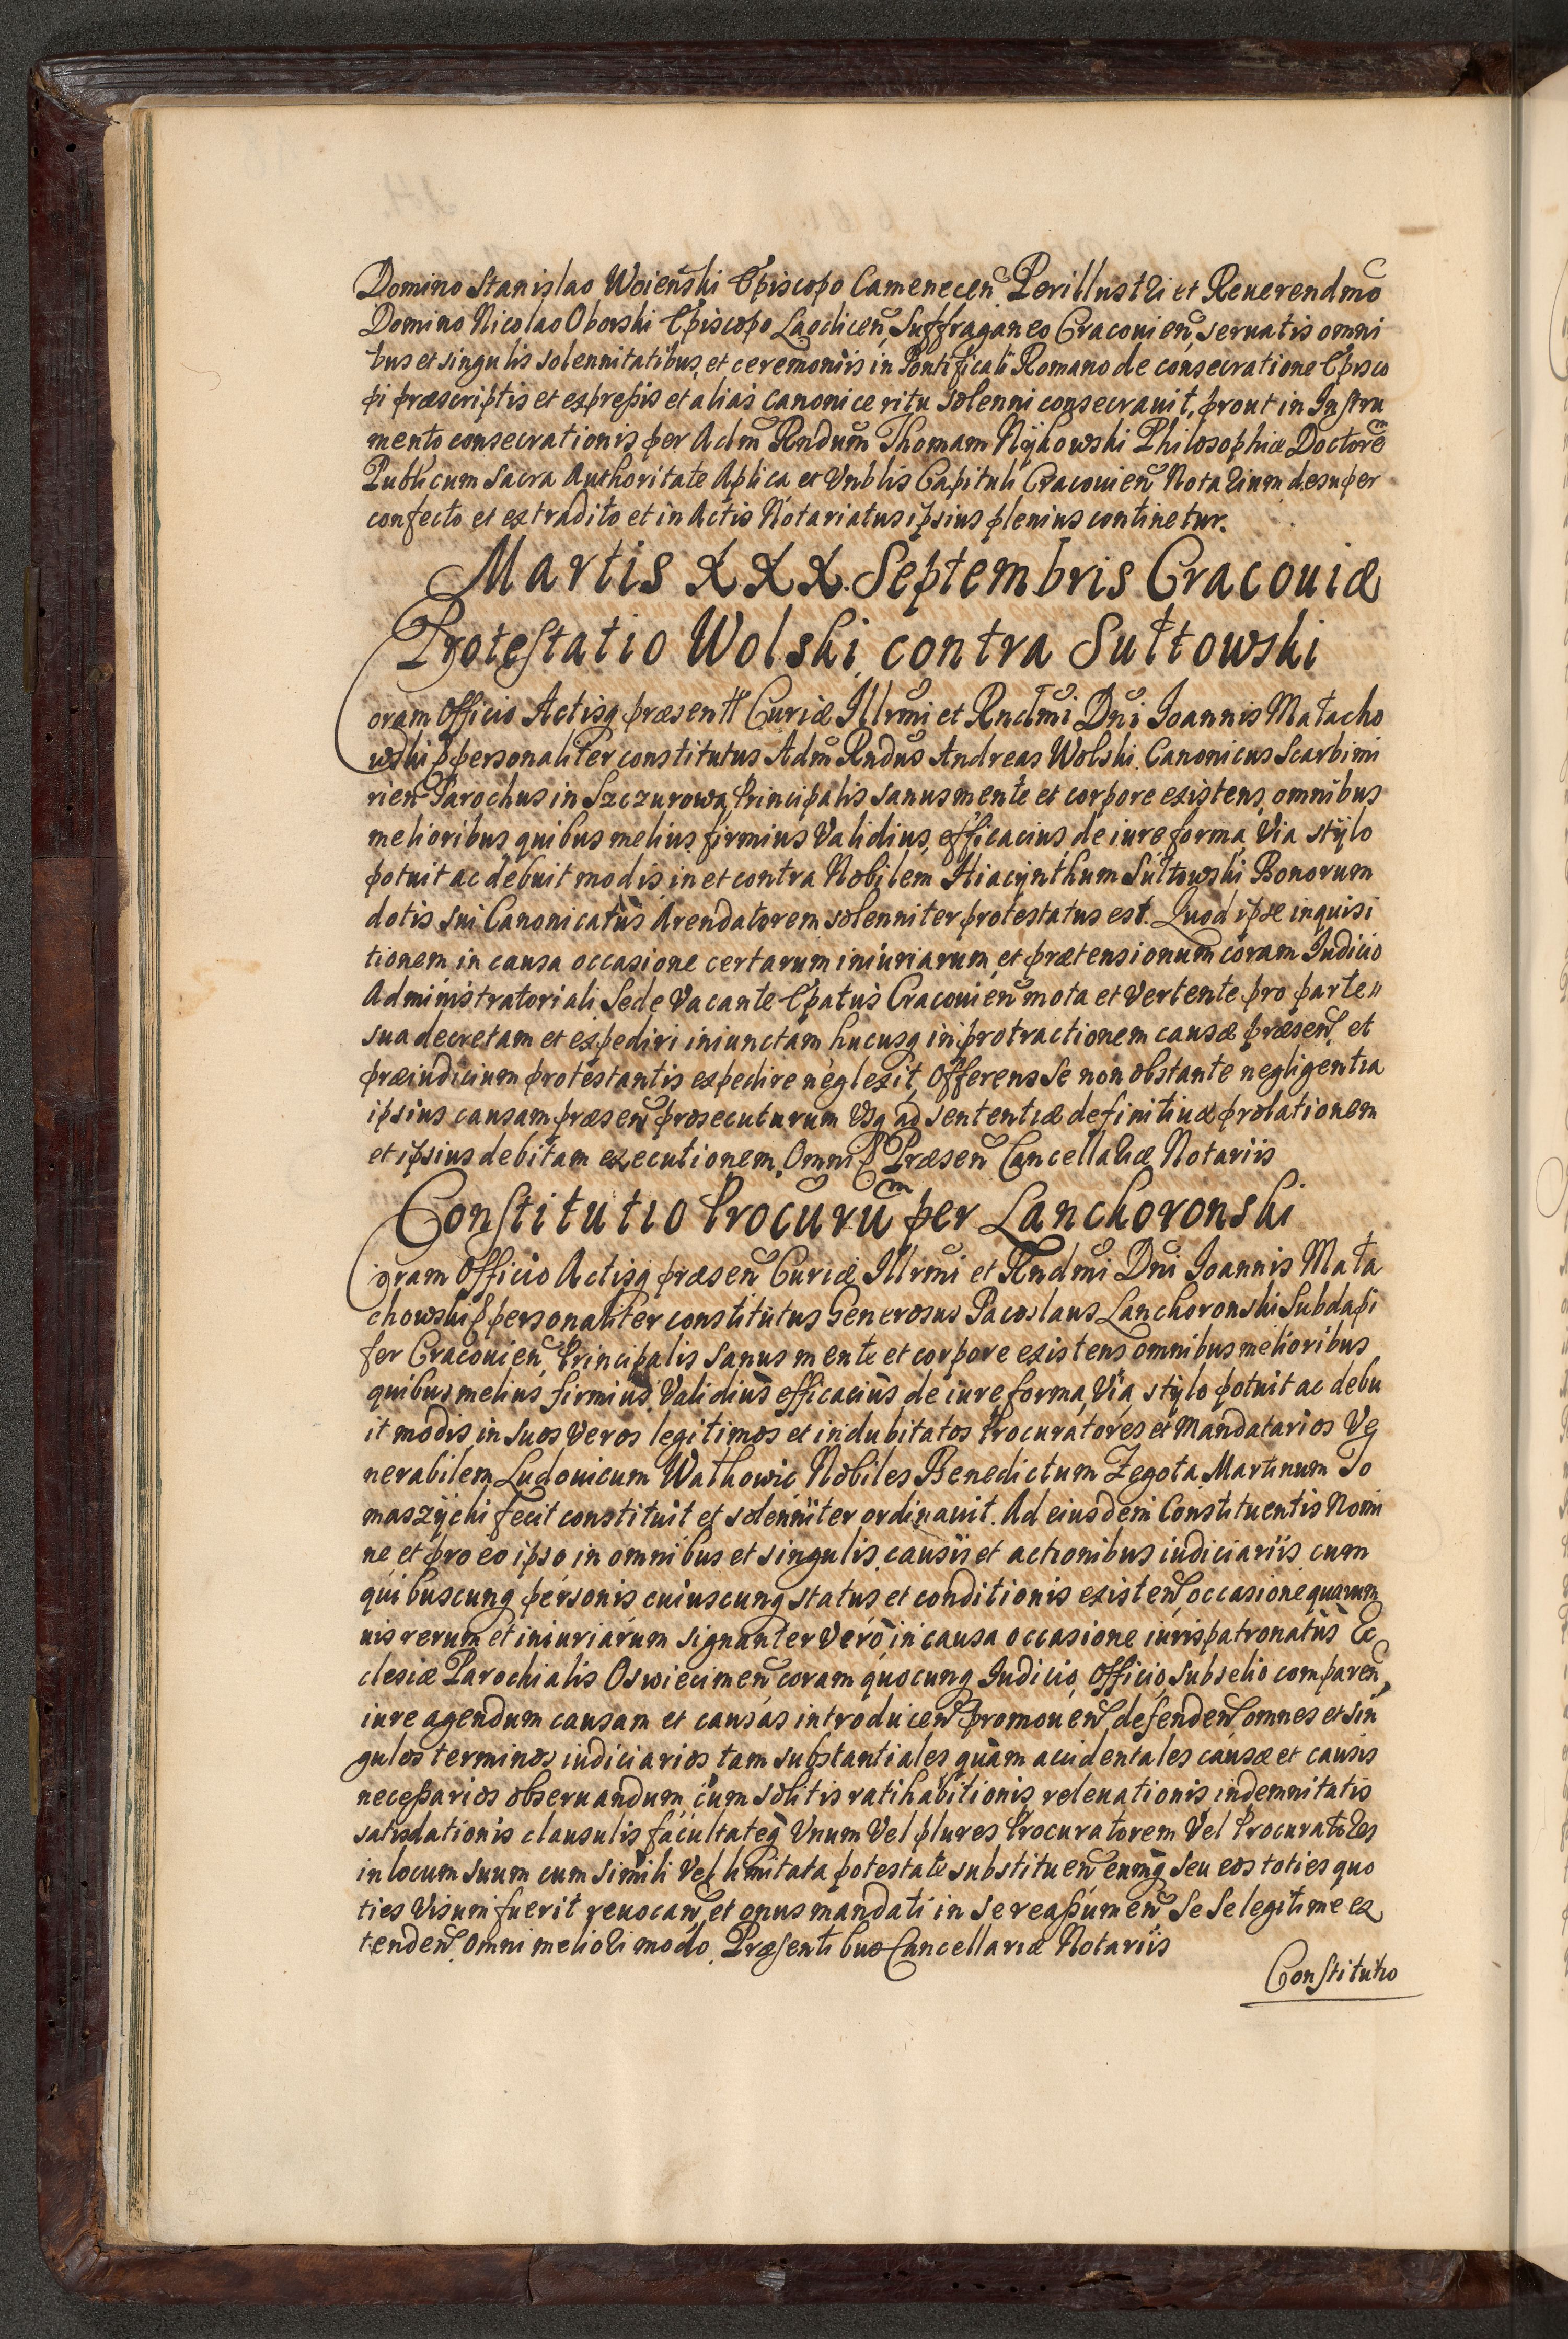 Domino Stanislao Woieñski Episcopo Camenecen̄ Perillustri et Reuerendmo
Domino Nicolao Oborski Episcopo Laodicen̄ Suffraganeo Cracouien̄ seruatis omni
bus et singulis solennitatibus, et ceremoniis in Pontificali Romano de consecratione Episco
pi præscriptis et expreßis et alias canonice ritu solenni consecrauit, prout in Instru
mento consecrationis per Adm̄ Rndum̄ Thomam Nijkowski Philosophiæ Doctorē
Publicum Sacra Authoritate Aplica et Vnblis Capituli Cracouien̄ Notarium desuper
confecto et extradito et in Actis Notariatus ipsius plenius continetur.
Martis XXX. Septembris Cracouiæ
Protestatio Wolski contra Sułtowski
Coram Officio Actisq præsentt Curiæ Illrmi et Rndmi Dni Ioannis Małacho
wski p personaliter constitutus Adm̄ Rndus Andreas Wolski Canonicus Scarbimi
rien̄ Parochus in Szczurowa Principalis sanus mente et corpore existens omnibus
melioribus quibus melius firmius Validius efficacius de iure forma Via stÿlo
potuit ac debuit modis in et contra Nobilem Hiacÿnthum Sułtowski Bonorum
dotis sui Canonicatus Arendatorem solenniter protestatus est. Quod ipse inquisi
tionem in causa occasione certarum iniuriarum et prætensionum coram Iudicio
Administratoriali Sede Vacante Epatus Cracouien̄ mota et Vertente pro parte
sua decretam et expediri iniunctam hucusq in protractionem causæ præsen̄ et
præiudicium protestantis expedire neglexit, Offerens Se non obstante negligentia
ipsius causam præsen̄ prosecuturum Vsq ad sententiæ definitiuæ prolationem
et ipsius debitam executionem, Omni p Præsen̄ Cancellariæ Notariis
Constitutio Procurum̄ per Lanckoronski
Coram Officio Actisq præsen̄ Curiæ Illrmi et Rndmi Dni Ioannis Mała
chowski p personaliter constitutus Generosus Pacoslaus Lanckoronski Subdapi
fer Cracouien̄ Principalis Sanus mente et corpore existens omnibus melioribus
quibus melius, firmius Validius efficacius de iure forma, Via, stÿlo potuit ac debu
it modis in suos Veros legitimos et indubitatos Procuratores et Mandatarios Ve
nerabilem Ludouicum Wathowic Nobiles Benedictum Zegota Martinum To
maszÿcki fecit constituit et solenniter ordinauit. Ad eiusdem Constituentis Nomi
ne et pro eo ipso in omnibus et singulis causis et actionibus iudiciariis cum
quibuscunq personis cuiuscunq status et conditionis existen̄ occasione quarum
uis rerum et iniuriarum signanter Vero in causa occasione iurispatronatus Ec
clesiæ Parochialis Oswiecimen̄ coram quocunq Iudicio, Officio, subselio comparen̄,
iure agendum causam et causas introducen̄ promouen̄ defenden̄ omnes et sin
gulos terminos iudiciarios tam substantiales quàm accidentales causæ et causis
neceßarios obseruandum cum solitis ratihabitionis, releuationis indemnitatis
satisdationis clausulis facultateq Vnum Vel plures Procuratorem Vel Procuratores
in locum suum cum simili Vel limitata potestate substituen̄ eumq seu eos toties quo
ties Visum fuerit reuocan̄ et onus mandati in se reaßumen̄ Se Se legitime ex
tenden̄ omni meliori modo Præsentibus Cancellariæ Notariis
Constitutio